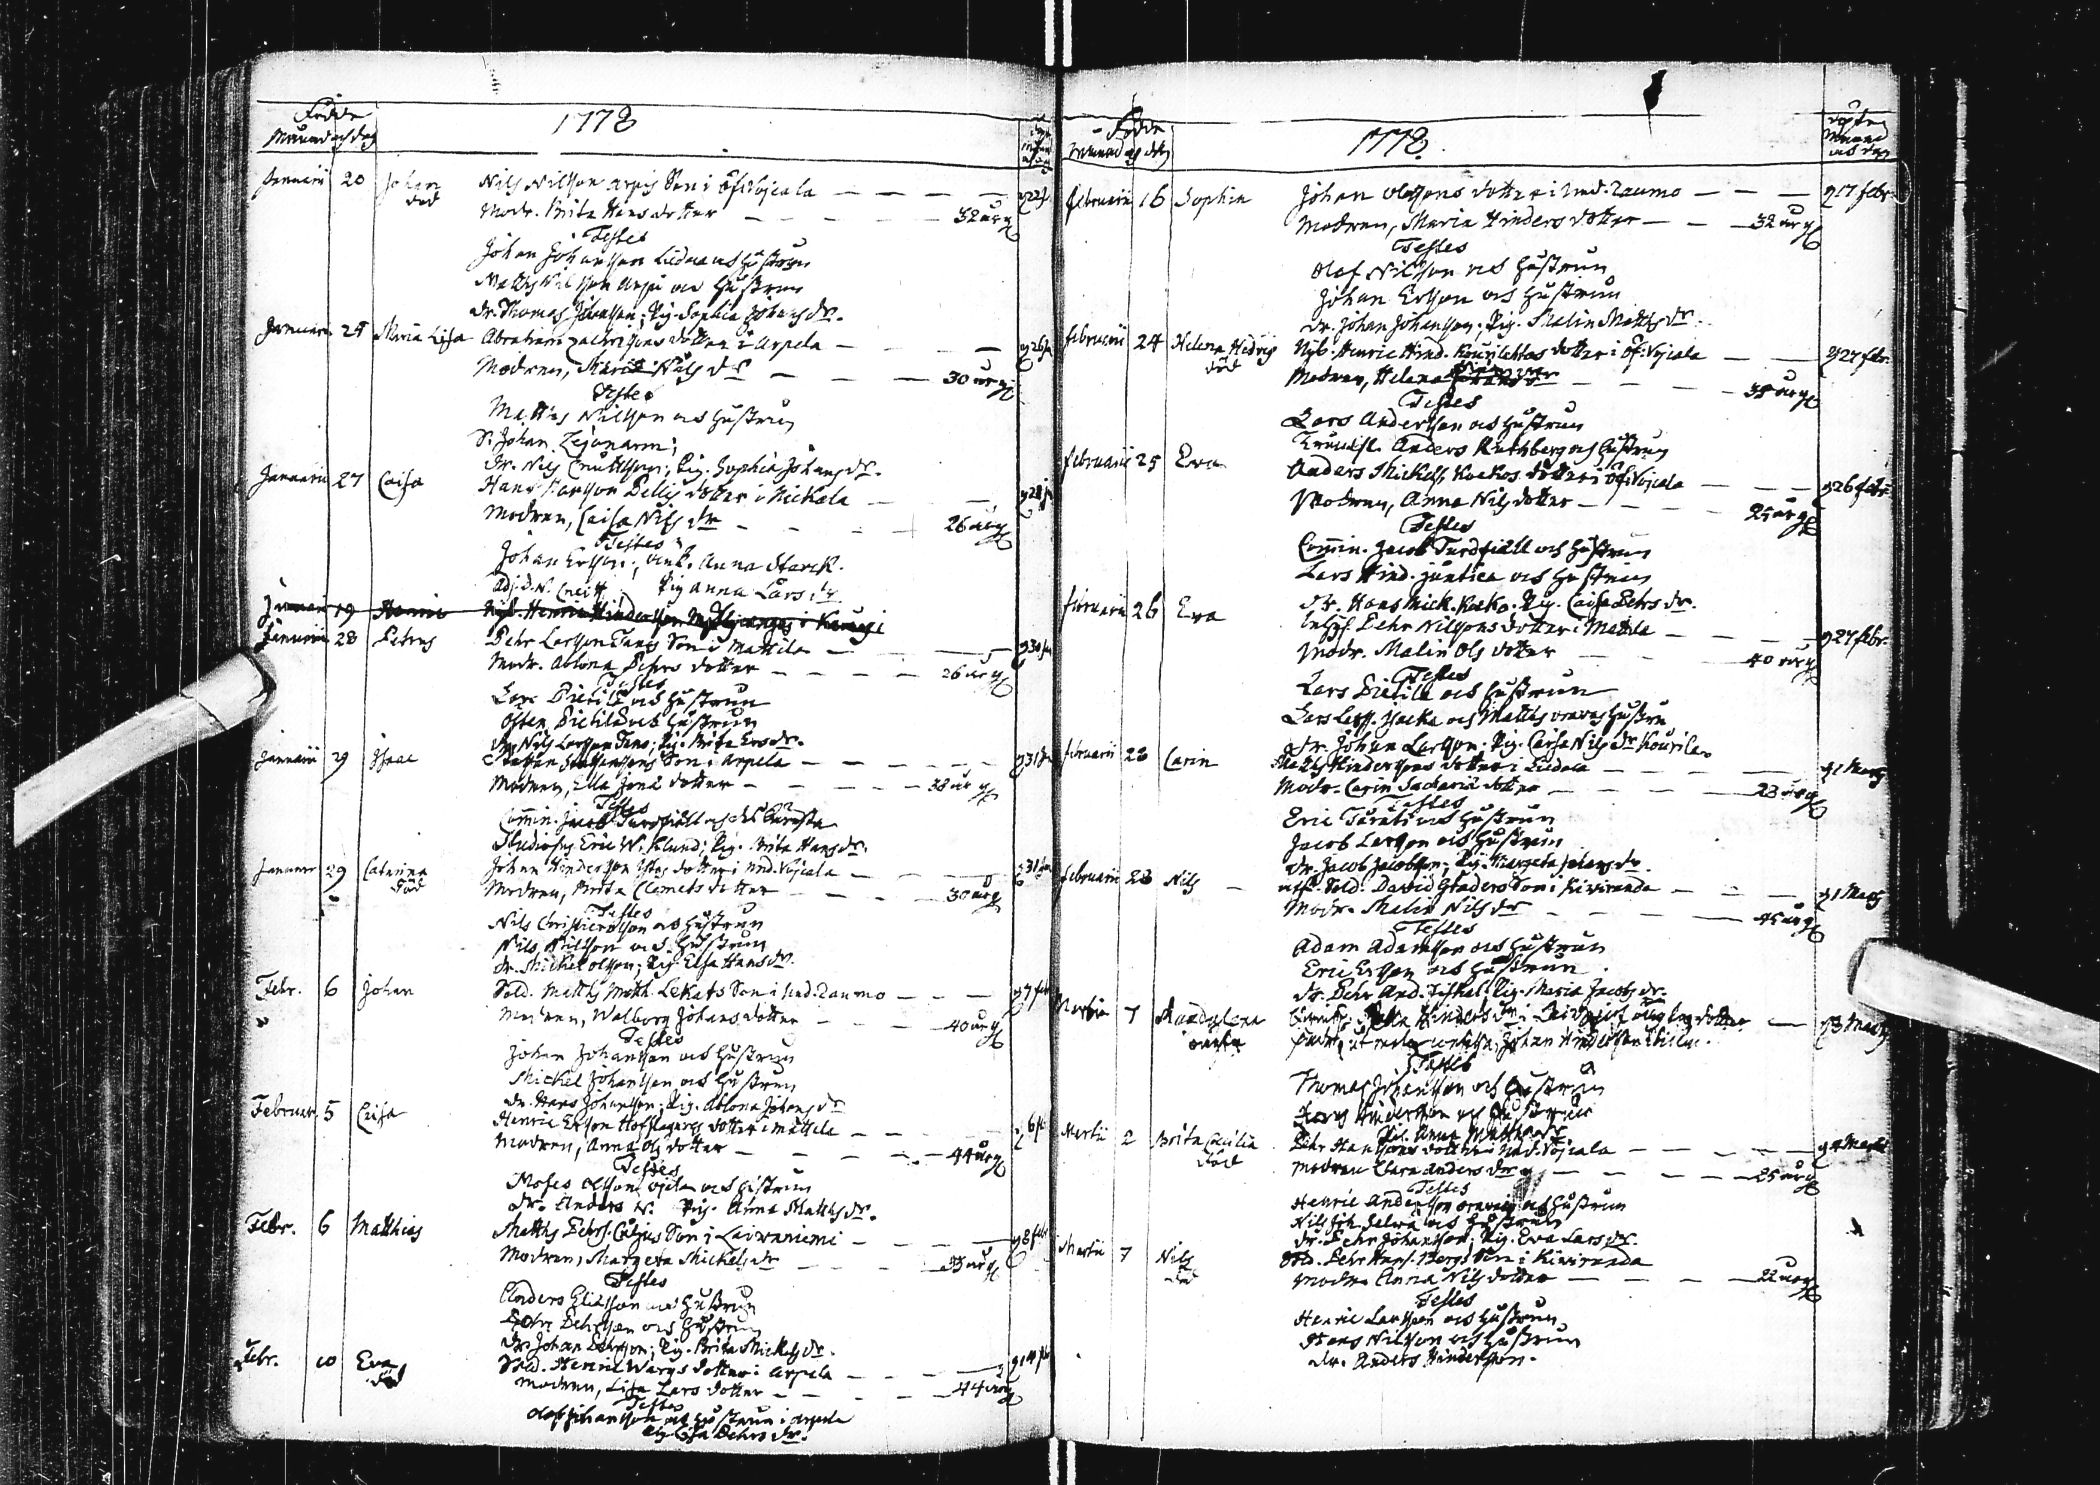 Födde
Månad och dag
1778
Januarii 20 Johan Nils Nilsson Arpis Son i Öf: Vojcala — — — 22 Jan
död Modr. Brita Hansdotter — — — 32 år g
Testes
Johan Johansson Liedana och Hustrun
Matths Nilsson Arpi och Hustrun
dr. Thomas Johansson; Pig. Sophia Johans dr.
Januarii 25 Maria Lisa Abraham Zachrissons dotter i Arpela — — — 26 Jan
Modren, Maria Nils dr — — — 30 år g
Testes
Matths Nilsson och Hustrun
Johan
Dr. Nils Cnutsson; Pig. Sophia Johans dr.
Januarii 27 Caisa Hans Larsson Pellis dotter i Nickala — — — 28 Jan
Modren, Caisa Nils dr — — — 26 år g
Testes
Johan Ersson; Anna Starck.
Adj. D.N. Pig Anna Lars dr.
Januarii 19 Henric Nyb. Henric Hindersson
Januarii 28 Petrus Pehr Larsson Tans Son i Mattila — — — 30 Jan
Modr. Ablona Pehrs dotter — — — 26 år g
Testes
Lars Pietilä och Hustrun
Östen Pietilä och Hustrun
dr. Nils Larsson Tans; Pig. Brita Ers dr.
Januarii 29 Isaac Staffan Staffanssons Son i Arpela — — — 31 Jan
Modren, Ella Jons dotter — — — 38 år g
Testes
Comin. Jacob Turdfiäll och des Käresta
Studiosus Eric W. Klund; Pig. Brita Hans dr.
Januar 29 Catarina Johan Hindersson dotter i Ned. Vojcala — — — 31 Jan
död Modren, Brita Clemets dotter — — — 30 år g
Testes
Nils Christiersson och Hustrun
Nils Nilsson och Hustrun
dr. Mickel Olsson; Pig. Elsa Hans dr.
Febr. 6 Johan Sold. Matths Matth. Lekats Son i Ned. Raumo — — — 7 feb
Modren, Walborg Johans dotter — — — 40 år g
Testes
Johan Johansson och Hustrun
Mickel Johansson och Hustrun
dr. Hans Johansson; Pig. Ablona Johans dr
Februar. 5 Caisa Henric Ersson Hofslagares dotter i Mattila — — — 6 feb
Modren, Anna Ols dotter — — — 44 år g
Testes
Moses Olsson och Hustrun
dr. Anders N. Pig. Anna Matths dr.
Febr. 6 Matthias Matths Pehrs. Son i Laivaniemi — — — 8 feb
Modren, Margeta Mickels dr — — — 33 år g
Testes
Anders Ericsson och Hustrun
Pehr Pehrsson och Hustrun
dr. Johan Pehrsson; Pig. Brita Mickels dr.
Febr. 10 Eva Sold. Henric Wargs dotter i Arpela — — — 14 feb
död Modren, Lisa Lars dotter — — — 44 år g
Testes
Olof Johansson och Hustrun i Arpela
Lisa Pehrs dr.
Födde
Månad och dag
1778.
döpte
Månad
och dag
februarii 16 Sophia Johan Olssons dotter i Ned. Raumo — — — 17 febr.
Modren, Maria Hinders dotter — — — 32 år g
Testes
Olof Nilsson och Hustrun
Johan Ersson och Hustrun
dr. Johan Johansson; Pig. Malin Matths dr.
februarii 24 Helena Hedvig Nyb. Henric Hind. Kourilehtos dotter i Öf: Vojcala — — 27 febr.
död Modren, Helena — — — 35 år g
Testes
Lars Andersson och Hustrun
Anders Ruthberg och Hustrun
februarii 25 Eva Anders Mickels. Koskos dotter i Öf: Vojcala — — — 26 febr
Modren, Anna Nils dotter — — — 25 år g
Testes
Comin. Jacob Turdfiäll och Hustrun
Lars Hind. Juntica och Hustrun
dr. Hans Mick. Kosko. Pig. Caisa Pehrs dr.
februarii 26 Eva Pehr Nilssons dotter i Mattila — — — 27 febr.
Modr. Malin Ols dotter — — — 40 år g
Testes
Lars Pietilä och Hustrun
Lars Larss. Yacka och Matths Hustru
dr. Johan Larsson; Pig. Caisa Nils dr Kourila
februarii 28 Carin Matths Hinderssons dotter i Liedala — — — 1 Marts
Modr. Carin Zacharie dotter — — — 28 år g
Testes
Eric Turati och Hustrun
Jacob Larsson och Hustrun
dr. Jacob Jacobsson; Pig. Margeta Johans dr
februarii 28 Nils — Sold. David Gladers Son i Kiviranda — — — 1 Marts
Modr. Malin Nils dr — — — 45 år g
Testes
Adam Adamsson och Hustrun
Eric Ersson och Hustrun
dr. Pehr And. Pig. Maria Jacobs dr.
Martii 1 Magdalena Hinders dr i dotter — 3 Marts
oäkta Johan Andersson
Testes
Thomas Johansson och Hustrun
Hindersson och Hustrun
Pig. Anna Matths dr
Martii 2 Brita Cecilia Pehr Hanssons dotter i Ned. Vojcala — — — 4 Martii
död Modren Clara Anders dr — — — 25 år g
Testes
Henric Andersson och Hustrun
Nils Joh. och Hustrun
dr. Pehr Johansson; Pig. Eva Lars dr.
Martii 7 Nils Sold. Pehr Hans. Bergs Son i Kiviranda
död Modren Anna Nils dotter — — — 22 år g
Testes
Henric Larsson och Hustrun
Hans Nilsson och Hustrun
dr. Anders Hindersson.